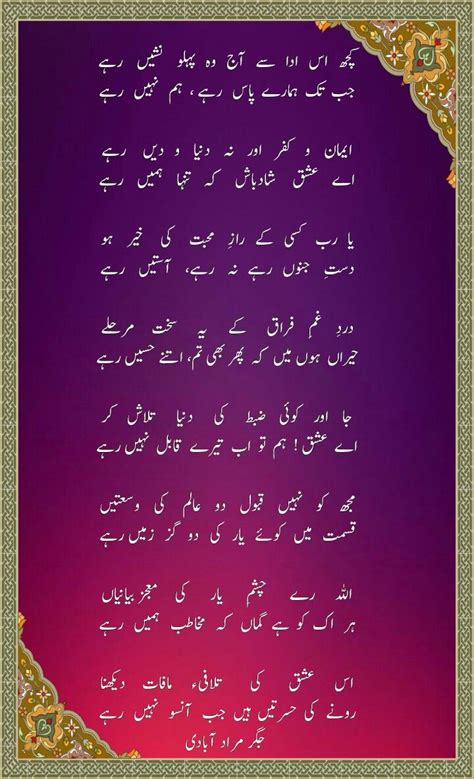 کچھ اس ادا سے آج وہ پہلو نشیں رہے
جب تک ہمارے پاس رہے، ہم نہیں رہے
ایمان و کفر اور نہ دنیا و دیں رہے
اے عشق شادباش کہ تنہا ہمیں رہے
یا رب کسی کے رازِ محبت کی خیر ہو
دستِ جنوں رہے نہ رہے، آستیں رہے
دردِ غمِ فراق کے یہ سخت مرحلے
حیراں ہوں میں کہ پھر بھی تم، اتنے حسیں رہے
جا اور کوئی ضبط کی دنیا تلاش کر
اے عشق! ہم تو اب تیرے قابل نہیں رہے
مجھ کو نہیں قبول دو عالم کی وسعتیں
قسمت میں کوئے یار کی دو گز زمیں رہے
اللہ رے چشمِ یار کی معجز بیانیاں
ہر اک کو ہے گماں کہ مخاطب ہمیں رہے
اس عشق کی تلافیٔ مافات دیکھنا
رونے کی حسرتیں ہیں جب آنسو نہیں رہے
جگر مراد آبادی